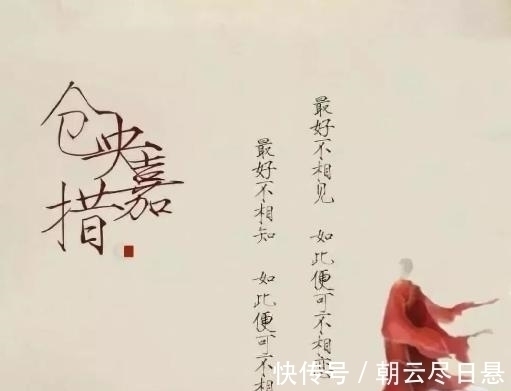 仓央嘉措
最好不相见 如此便可不相恋
最好不相知 如此便可不相
快传号/朝云尽日悬